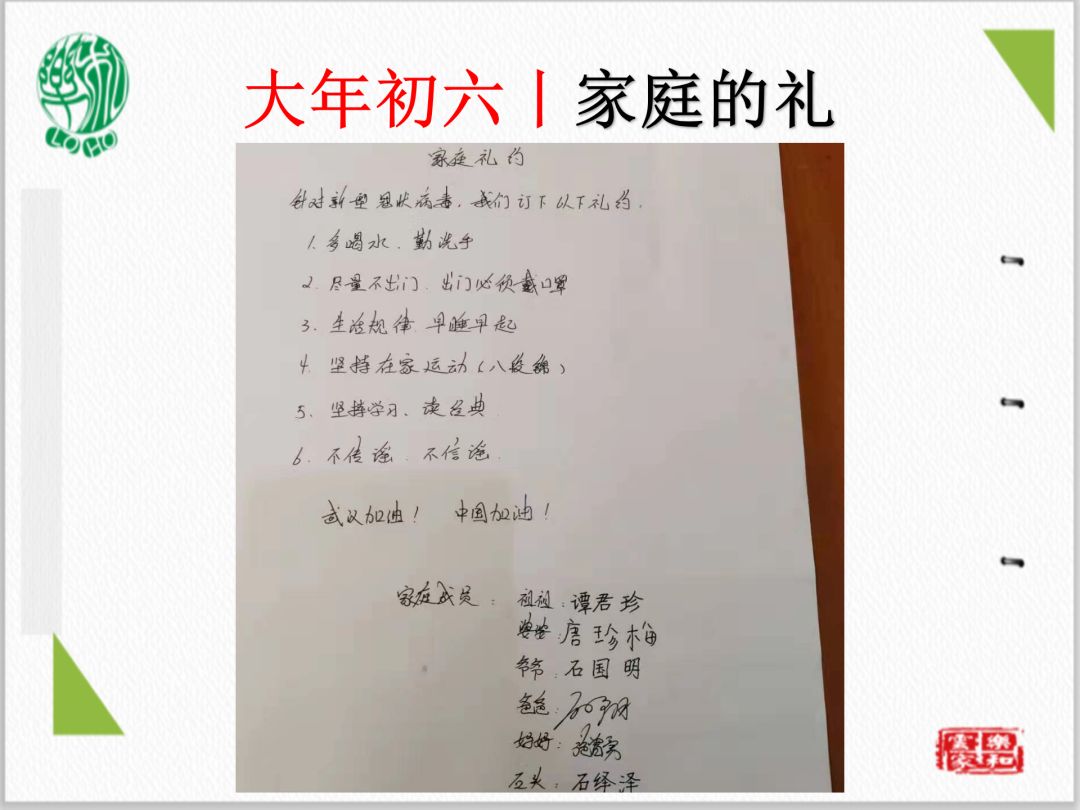 大年初六丨家庭的礼
LOHO
家庭礼约
针对新型冠状病毒，我们订下以下礼约。
1. 多喝水、勤洗手
2. 尽量不出门、出门必须戴口罩
3. 生活规律 早睡早起
4. 坚持在家运动（八段锦）
5. 坚持学习、读经典
6. 不传谣 不信谣.
武汉加油！ 中国加油！
家庭成员： 祖祖：谭君珍
婆婆：唐珍梅
爷爷：石国明
爸爸：
妈妈：
石头：石绎泽